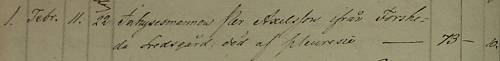 1. Febr. 11. 22 Inhysesmannen Per Axelsson ifrån Forshe-
da Fredsgård, död af pleuresie — 73 — 10.